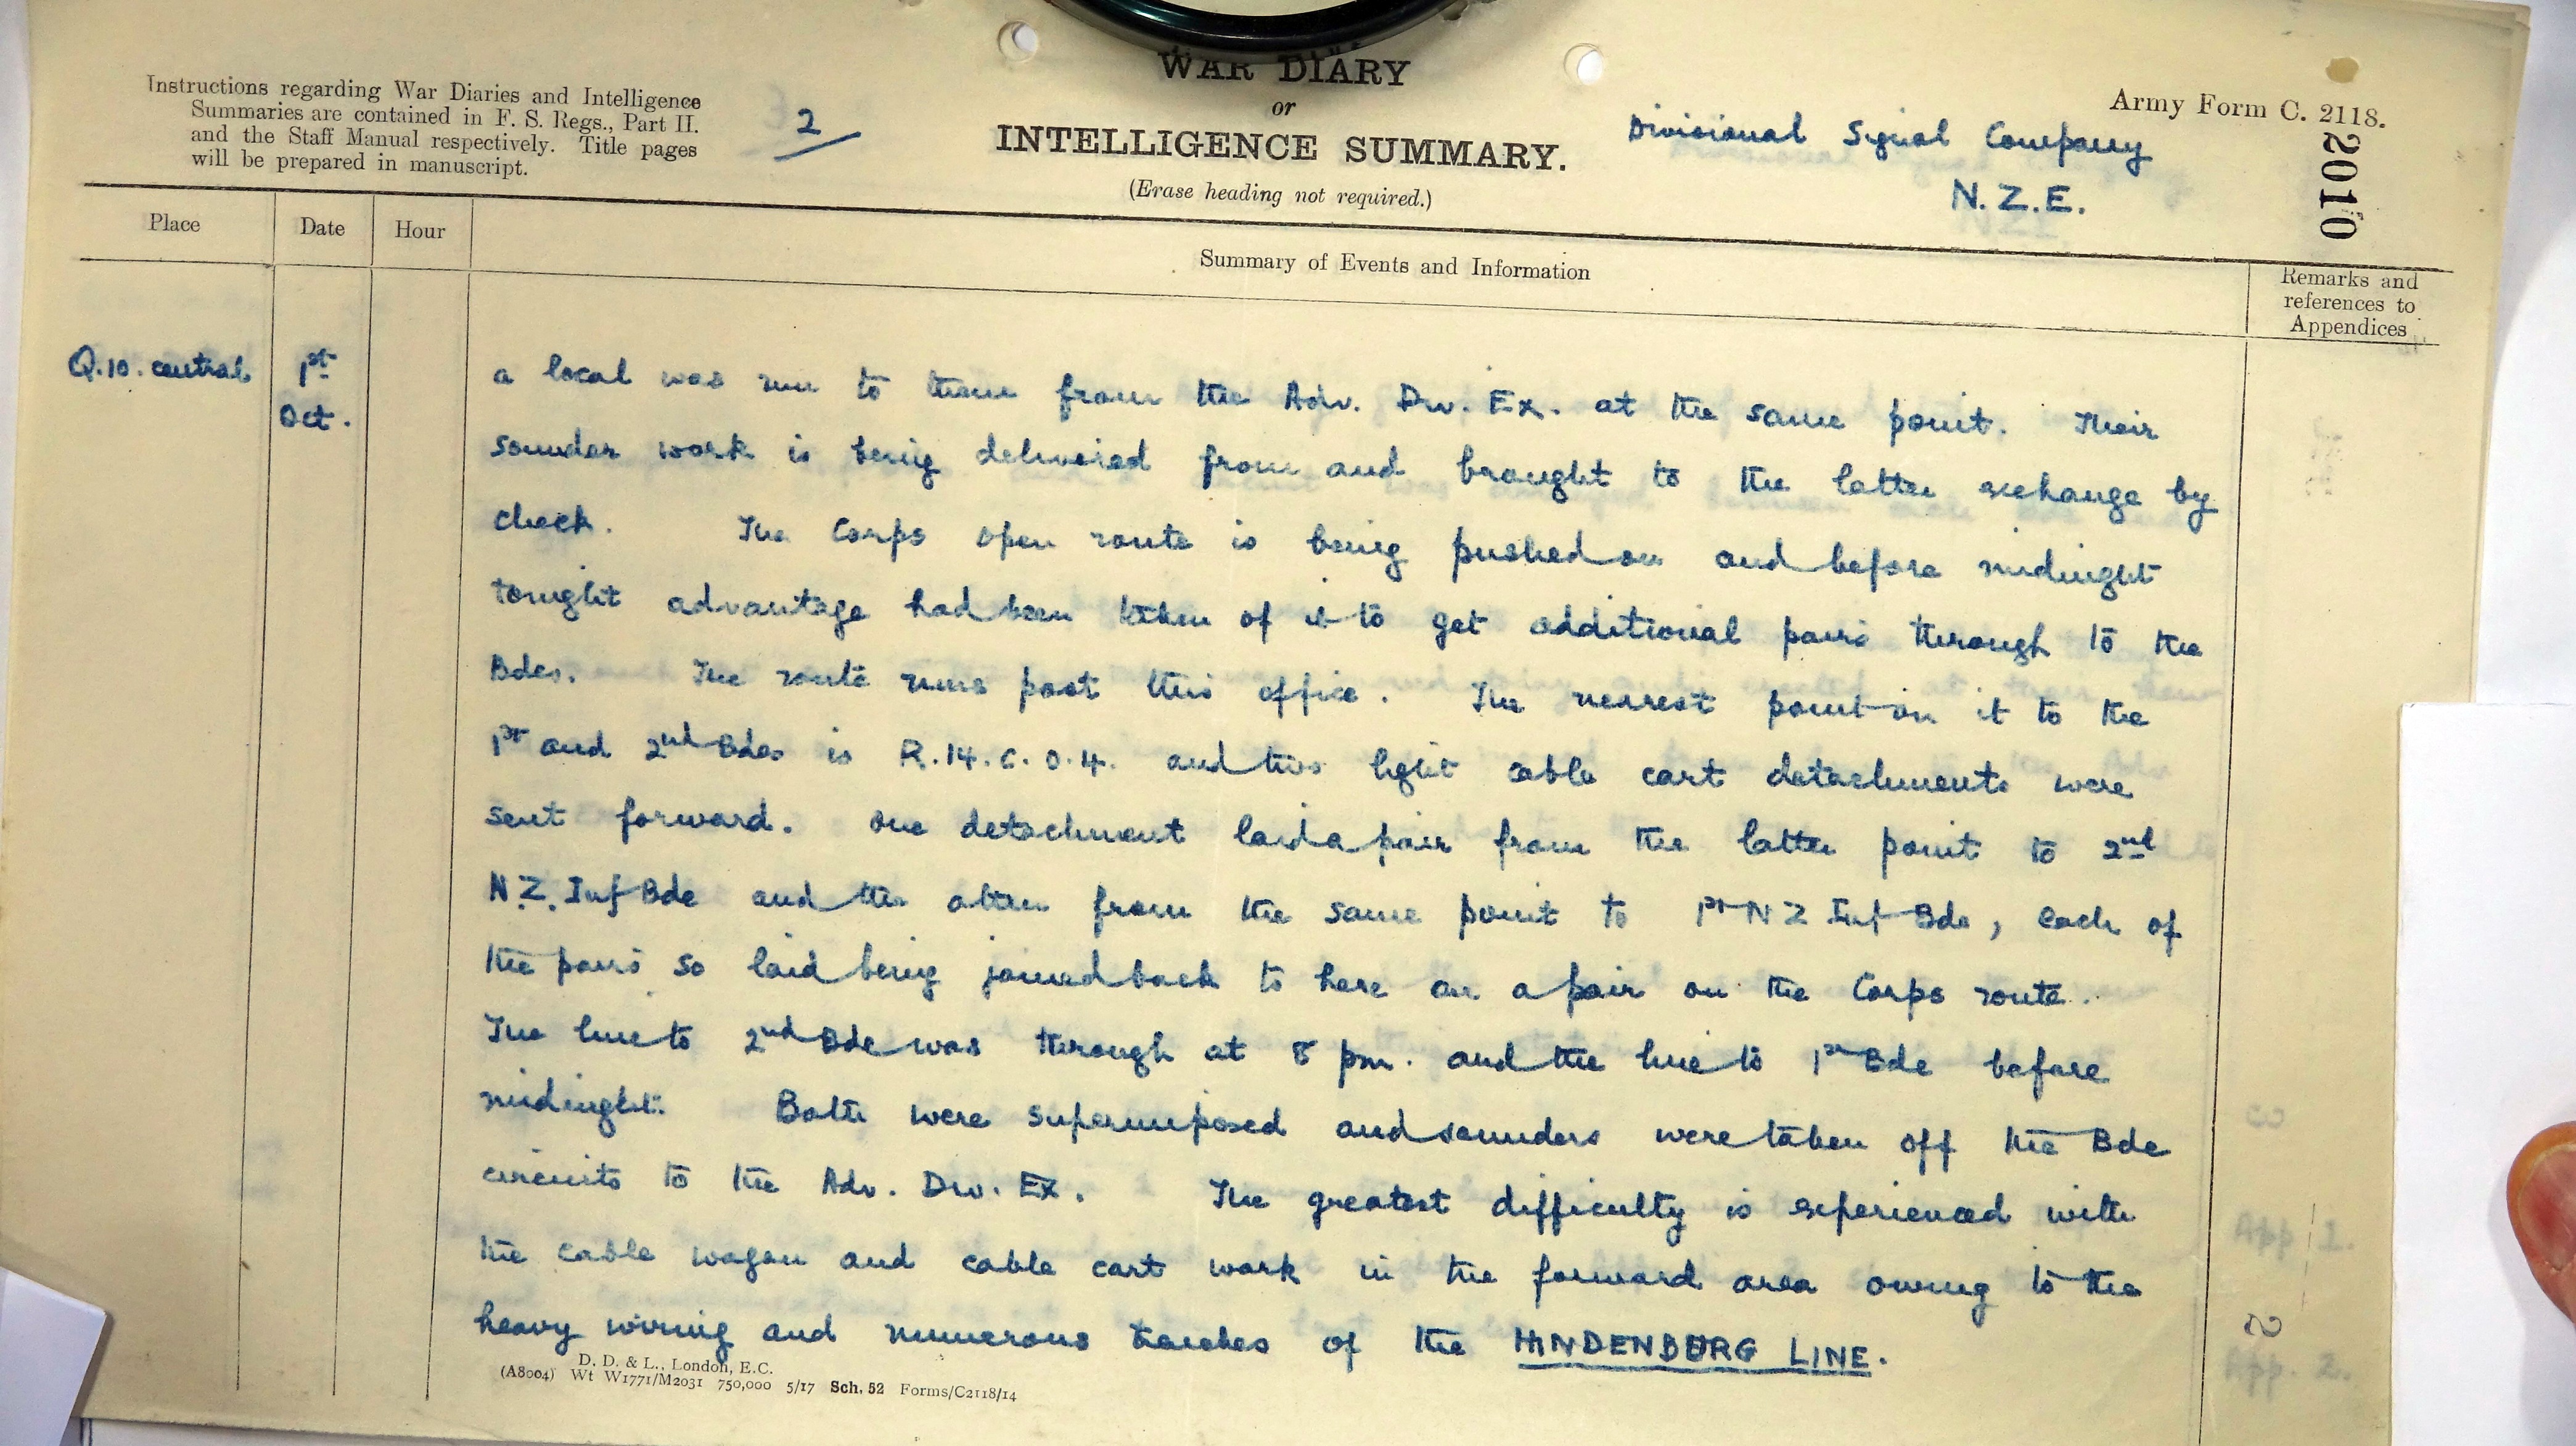 WAR DIARY
or
INTELLIGENCE SUMMARY.
(Erase heading not required.)
Instructions regarding War Diaries and Intelligence
Summaries are contained in F. S. Regs., Part II.
and the Staff Manual respectively. Title pages
will be prepared in manuscript.
2
Army Form C. 2118.
Divisional Signal Company
N.Z.E.
2010
Place
Date
Hour
Summary of Events and Information
Remarks and
references to
Appendices
Q.10. central
1st
Oct.
a local was run to them from the Adv. Div. Ex. at the same point. Their
sounder work is being delivered from and brought to the latter exchange by
check. The Corps open route is being pushed on and before midnight
tonight advantage had been taken of it to get additional pairs through to the
Bdes. The route runs past this office. The nearest point on it to the
1st and 2nd Bdes is R.14.c.0.4. and two light cable cart detachments were
sent forward. One detachment laid a pair from the latter point to 2nd
N.Z. Inf Bde and the other from the same point to 1st N Z Inf Bde, each of
the pairs so laid being joined back to here on a pair on the Corps route.
The line to 2nd Bde was through at 8 pm. and the line to 1st Bde before
midnight. Both were superimposed and sounders were taken off the Bde
circuits to the Adv. Div. Ex. The greatest difficulty is experienced with
the cable wagon and cable cart work in the forward area owing to the
heavy wiring and numerous trenches of the HINDENBURG LINE.
D. D. & L., London, E.C.
(A8004) Wt W1771/M2031 750,000 5/17 Sch. 52 Forms/C2118/14
App 1.
App. 2.